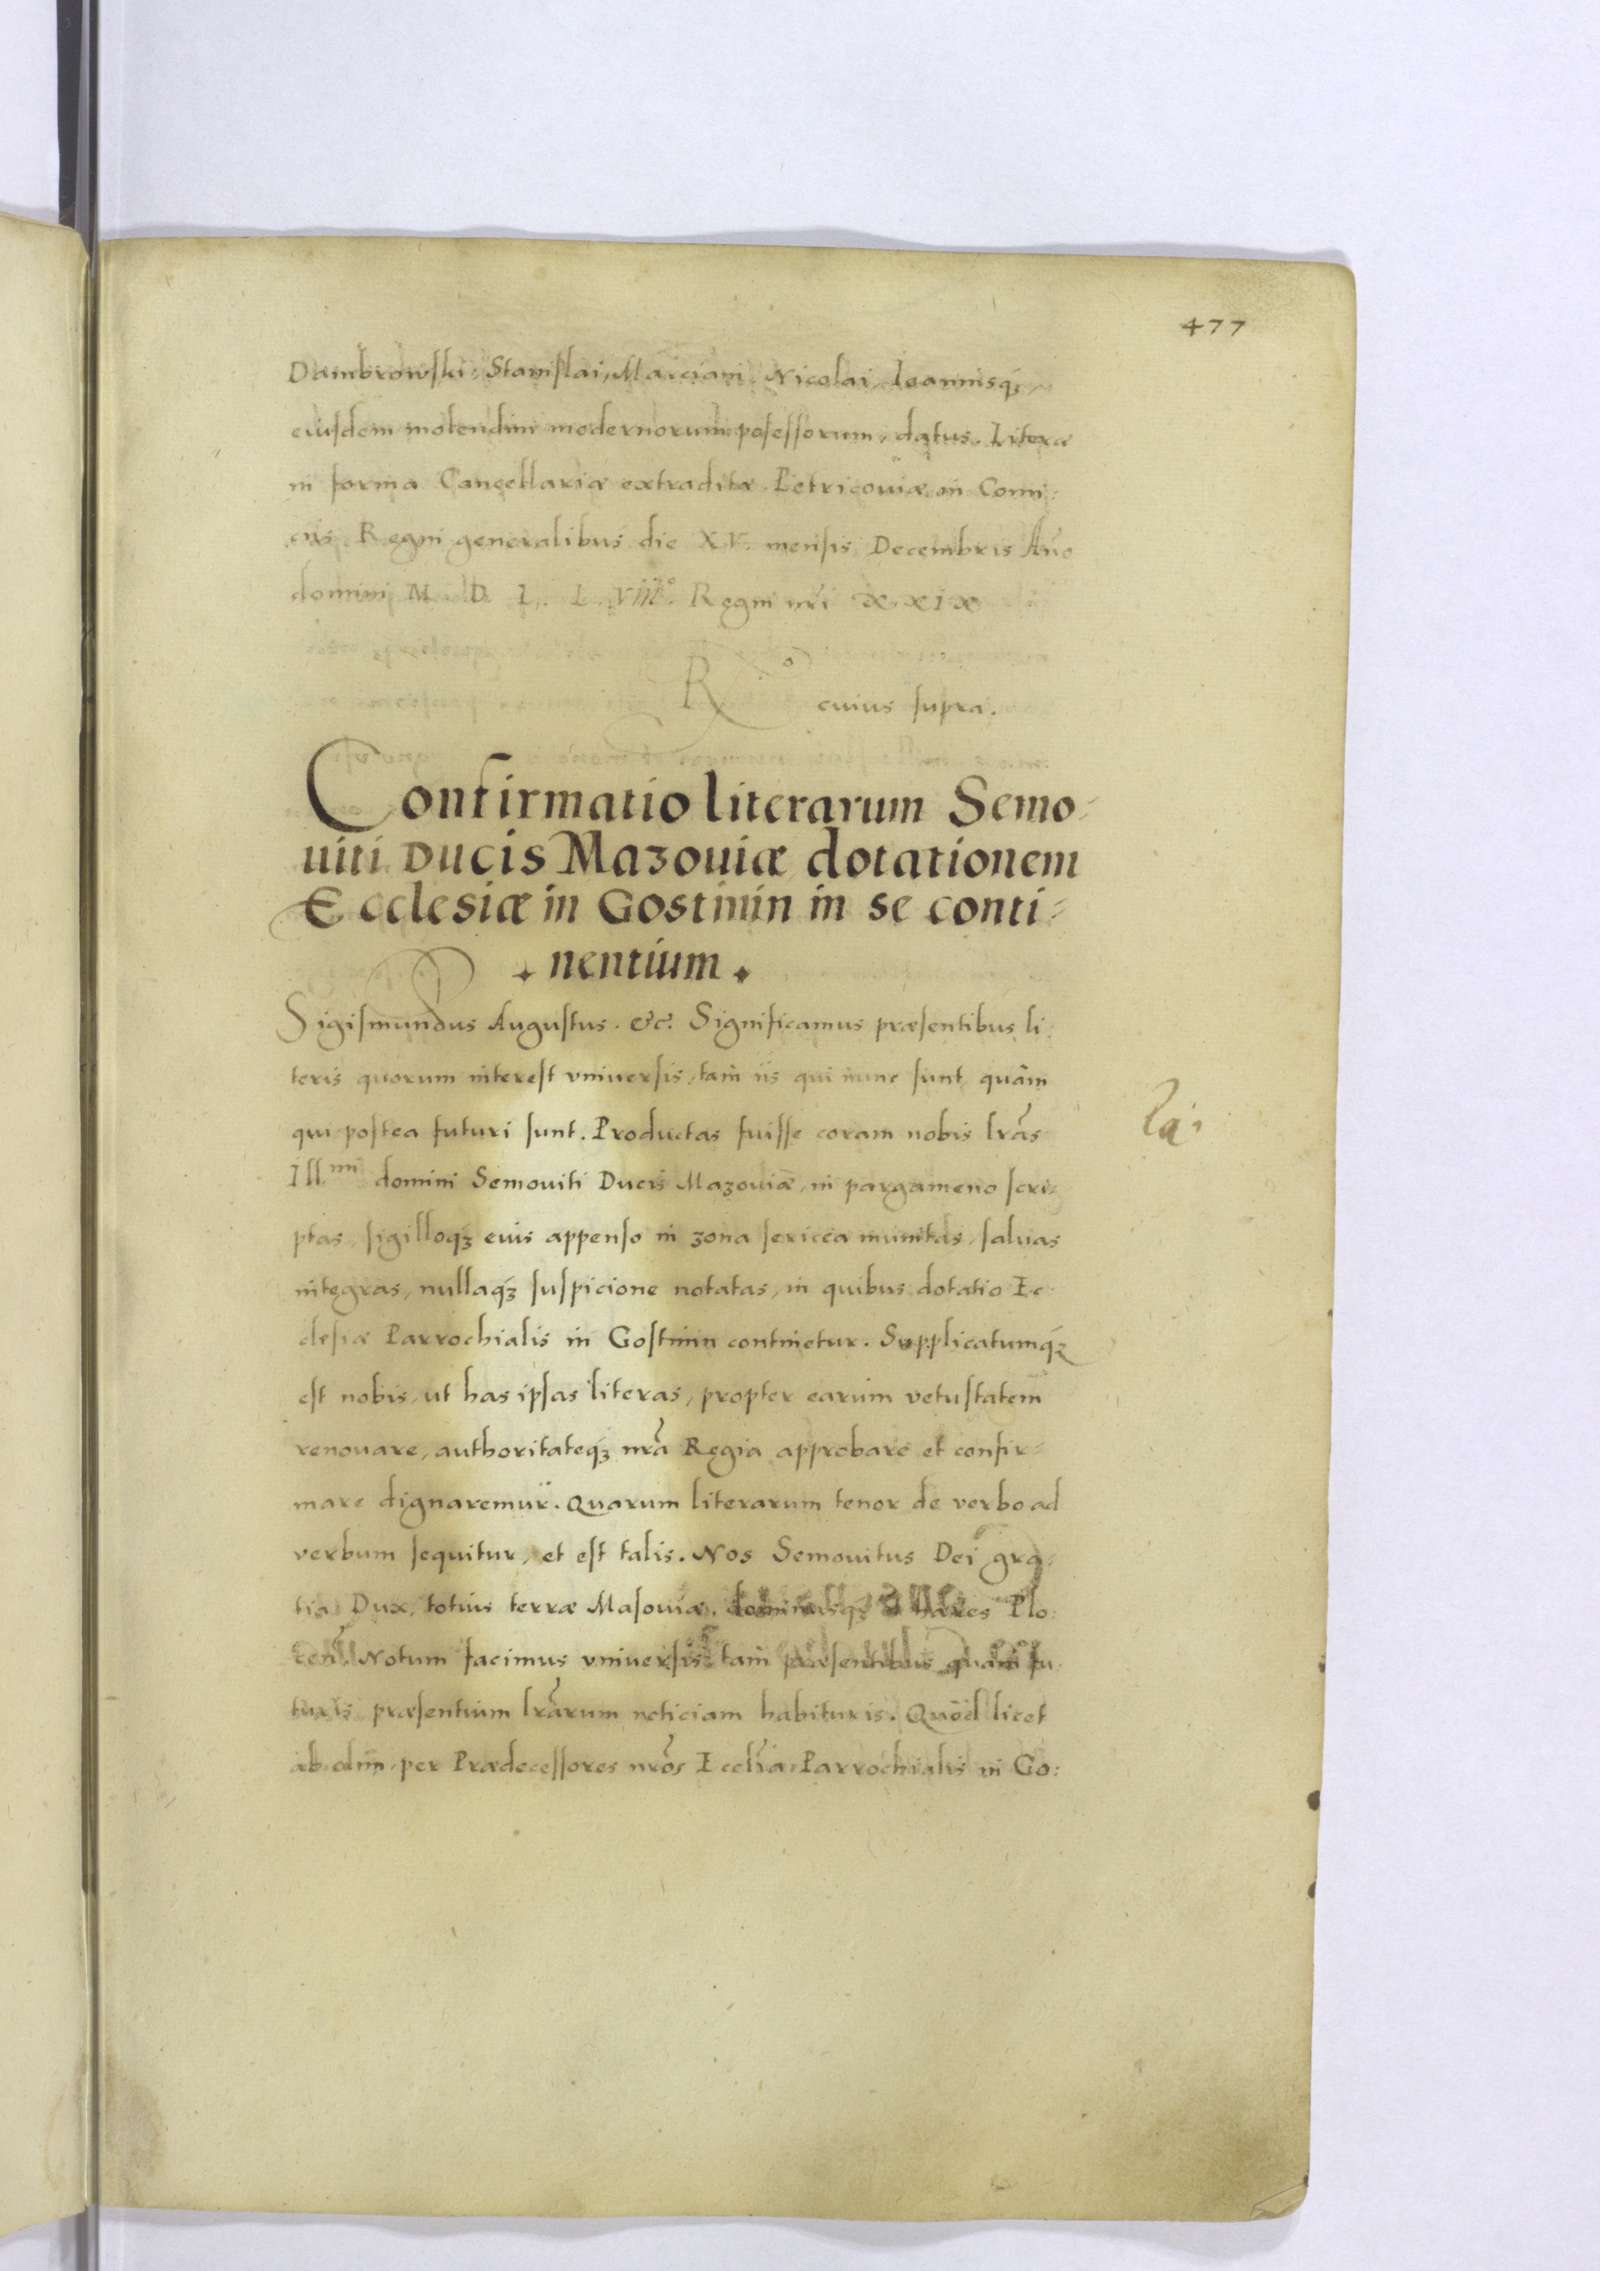 477
Dambrowski, Stanislai, Marciani, Nicolai, Ioannisq́ꝫ
eiusdem motendini modernorum posessorum, datus. Literæ
in forma Cancellariæ extraditæ Petricouiæ in Comi:
ciis Regni generalibus die XV. mensis Decembris Año
domini M. D. L. L. VIIIº. Regni nr̃i XXIX
Rº
cuius supra.
Confirmatio literarum Semo-
uiti Ducis Mazouiæ dotationem
Ecclesiæ in Gostinin in se conti-
nentium
Sigismundus Augustus. &c. Significamus præsentibus li:
teris quorum interest vniuersis, tam iis qui nunc sunt quàm
qui postea futuri sunt. Productas fuisse coram nobis lr̃as
Ill.mi domini Semouiti Ducis Mazouiæ, in pargameno scri-
ptas, sigilloq́ꝫ eius appenso in zona sericea munitas, saluas
integras, nullaq́ꝫ suspicione notatas, in quibus dotatio Ec-
clesiæ Parrochialis in Gostinin continetur. Supplicatumq́ꝫ
est nobis, ut has ipsas literas, propter earum vetustatem
renouare, authoritateq́ꝫ nr̃a Regia approbare et confir-
mare dignaremur. Quarum literarum tenor de verbo ad
verbum sequitur, et est talis. Nos Semouitus Dei gra:
tia Dux, totius terræ Masouiæ, dominusq́ꝫ hæres Plo:
cen̄. Notum facimus vniuersis tam præsentibus quàm fu
turis præsentium lr̃arum noticiam habituris. Quòd licet
ab olim per Prædecessores nr̃os Eccl̃ia Parrochialis in Go: